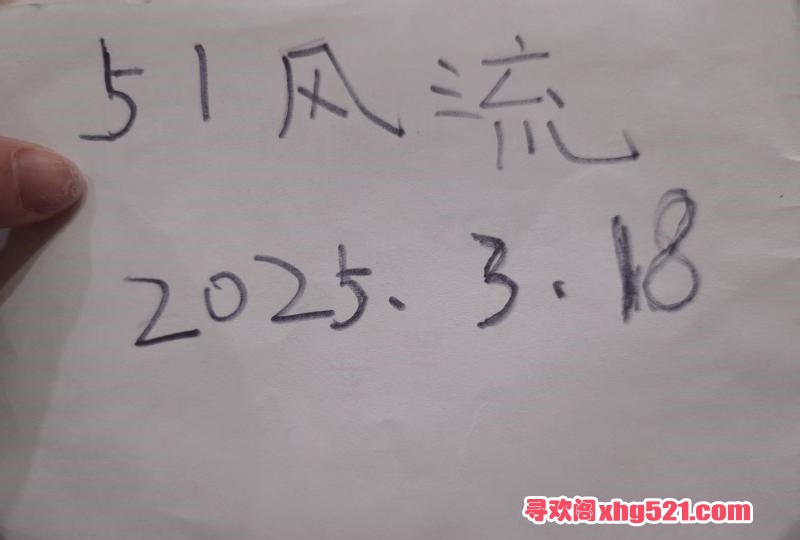 51风流
2025.3.18
寻欢阁xhg521.com